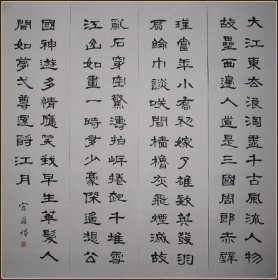 大江東去浪淘盡千古風流人物
故壘西邊人道是三國周郎赤壁
瑾當年小喬初嫁了雄姿英發羽
扇綸巾談笑間檣櫓灰飛煙滅故
亂石穿空驚濤拍岸捲起千堆雪
江山如畫一時多少豪傑遙想公
國神遊多情應笑我早生華髮人
間如夢弌尊還酹江月